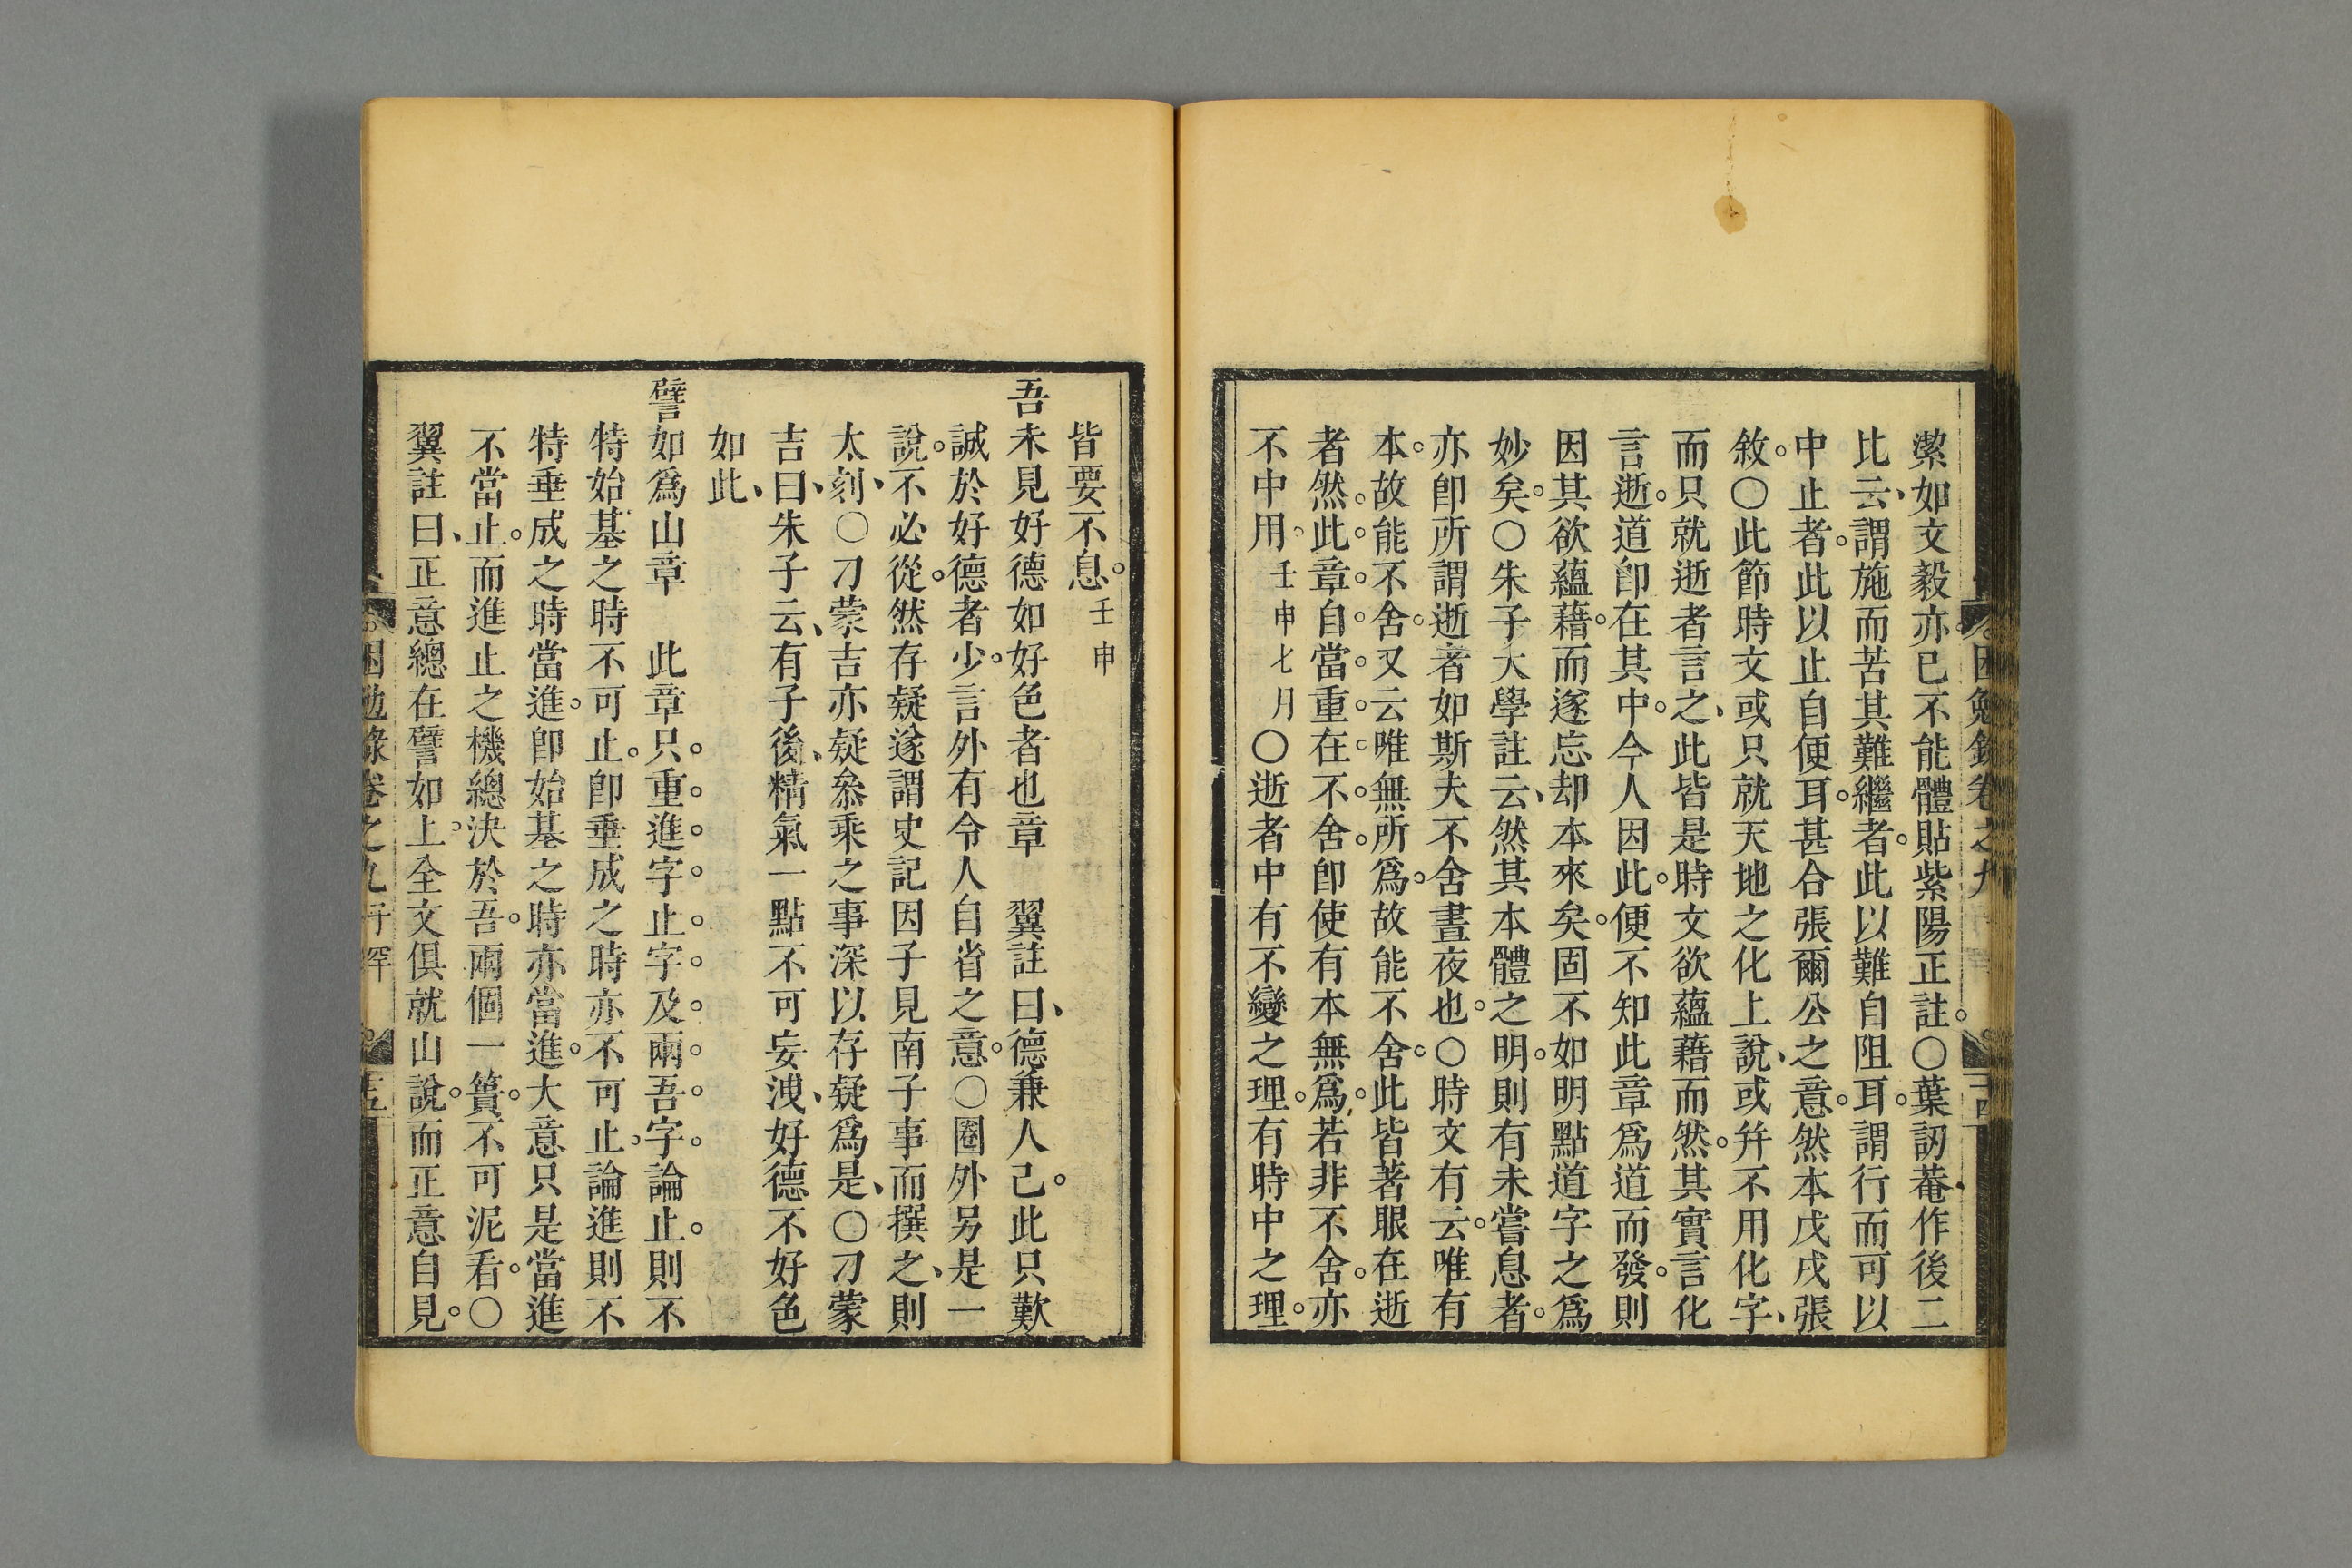 潔如文毅亦已不能體貼紫陽正註。○葉訒菴作後二
比云、謂施而苦其難繼者。此以難自阻耳。謂行而可以
中止者。此以止自便耳。甚合張爾公之意。然本戊戌張
敘。○此節時文或只就天地之化上說、或幷不用化字、
而只就逝者言之、此皆是時文欲蘊藉而然。其實言化
言逝。道卽在其中。今人因此。便不知此章爲道而發。則
因其欲蘊藉。而遂忘却本來矣。固不如明點道字之爲
妙矣。○朱子大學註云、然其本體之明。則有未嘗息者。
亦卽所謂逝者如斯夫不舍晝夜也。○時文有云。唯有
本。故能不舍。又云唯無所爲。故能不舍。此皆著眼在逝
者然。此。章。自。當。重。在。不。舍。卽使有本無爲。若非不舍。亦
不中用。壬申七月○逝者中有不變之理。有時中之理。
困勉錄卷之九
十四
皆要不息。壬申
吾未見好德如好色者也章　翼註曰、德兼人己。此只歎
誠於好德者少。言外有令人自省之意。○圈外另是一
說。不必從。然存疑遂謂史記因子見南子事而撰之、則
太刻、○刁蒙吉亦疑叅乘之事深以存疑爲是、○刁蒙
吉曰、朱子云、有子後、精氣一點不可妄洩、好德不好色
如此、
譬如爲山章　此章只。重。進。字。止。字。及。兩。吾。字。論止。則不
特始基之時不可止。卽垂成之時亦不可止。論進則不
特垂成之時當進。卽始基之時亦當進。大意只是當進
不當止。而進止之機總決於吾。兩個一簣。不可泥看。○
翼註曰、正意總在譬如上。全文俱就山說。而正意自見。
困勉錄卷之九　子罕
十五